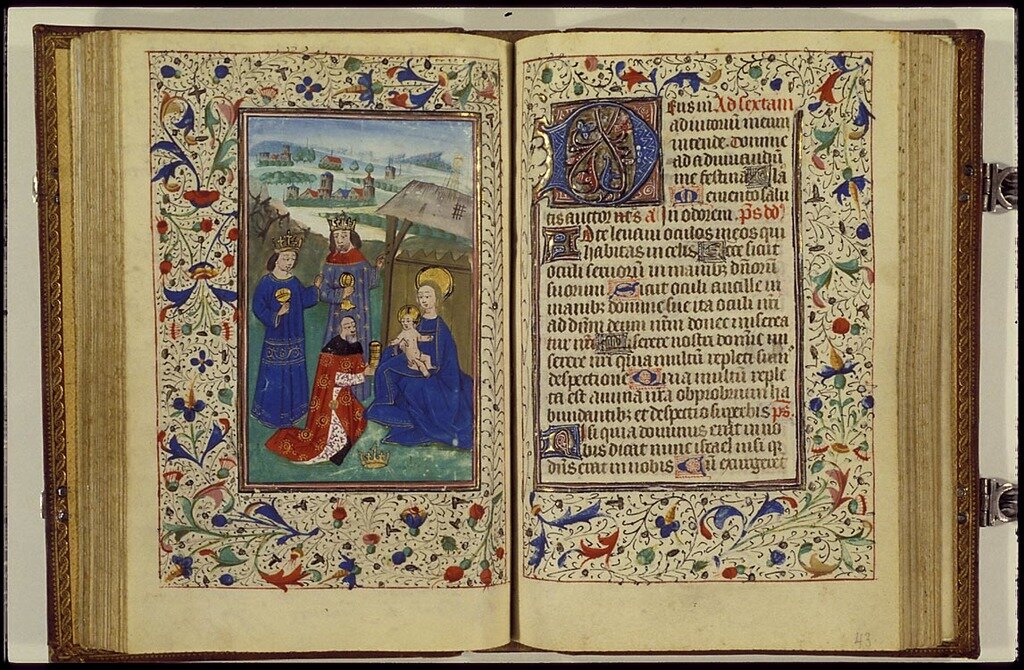 Deus in Ad sextam
adiutoriũ meum
intende. domine
ad adiuuandũ
me festina Gla
Memento salu
tis auctor  añ In odorem. p̃s dd
AD te leuaui oculos meos qui
habitas in celis Ecce sicut
oculi seruorũ in manibꝫ dñorũ
suorum Sicut oculi ancille in
manibꝫ domine sue ita oculi nr̃i
ad dñm deum nr̃m donec miserea
tur nr̃i Miserere nostri domine mi
serere nr̃i quia multũ repleti sum̃
despectione Quia multũ reple
ta est anima nr̃a obprobrium ha
bundantibꝫ et despectio superbis p̃s
NIsi quia dominus erat in no
bis dicat nunc israel nisi q̃
dñs erat in nobis Cũ exurgeret
43